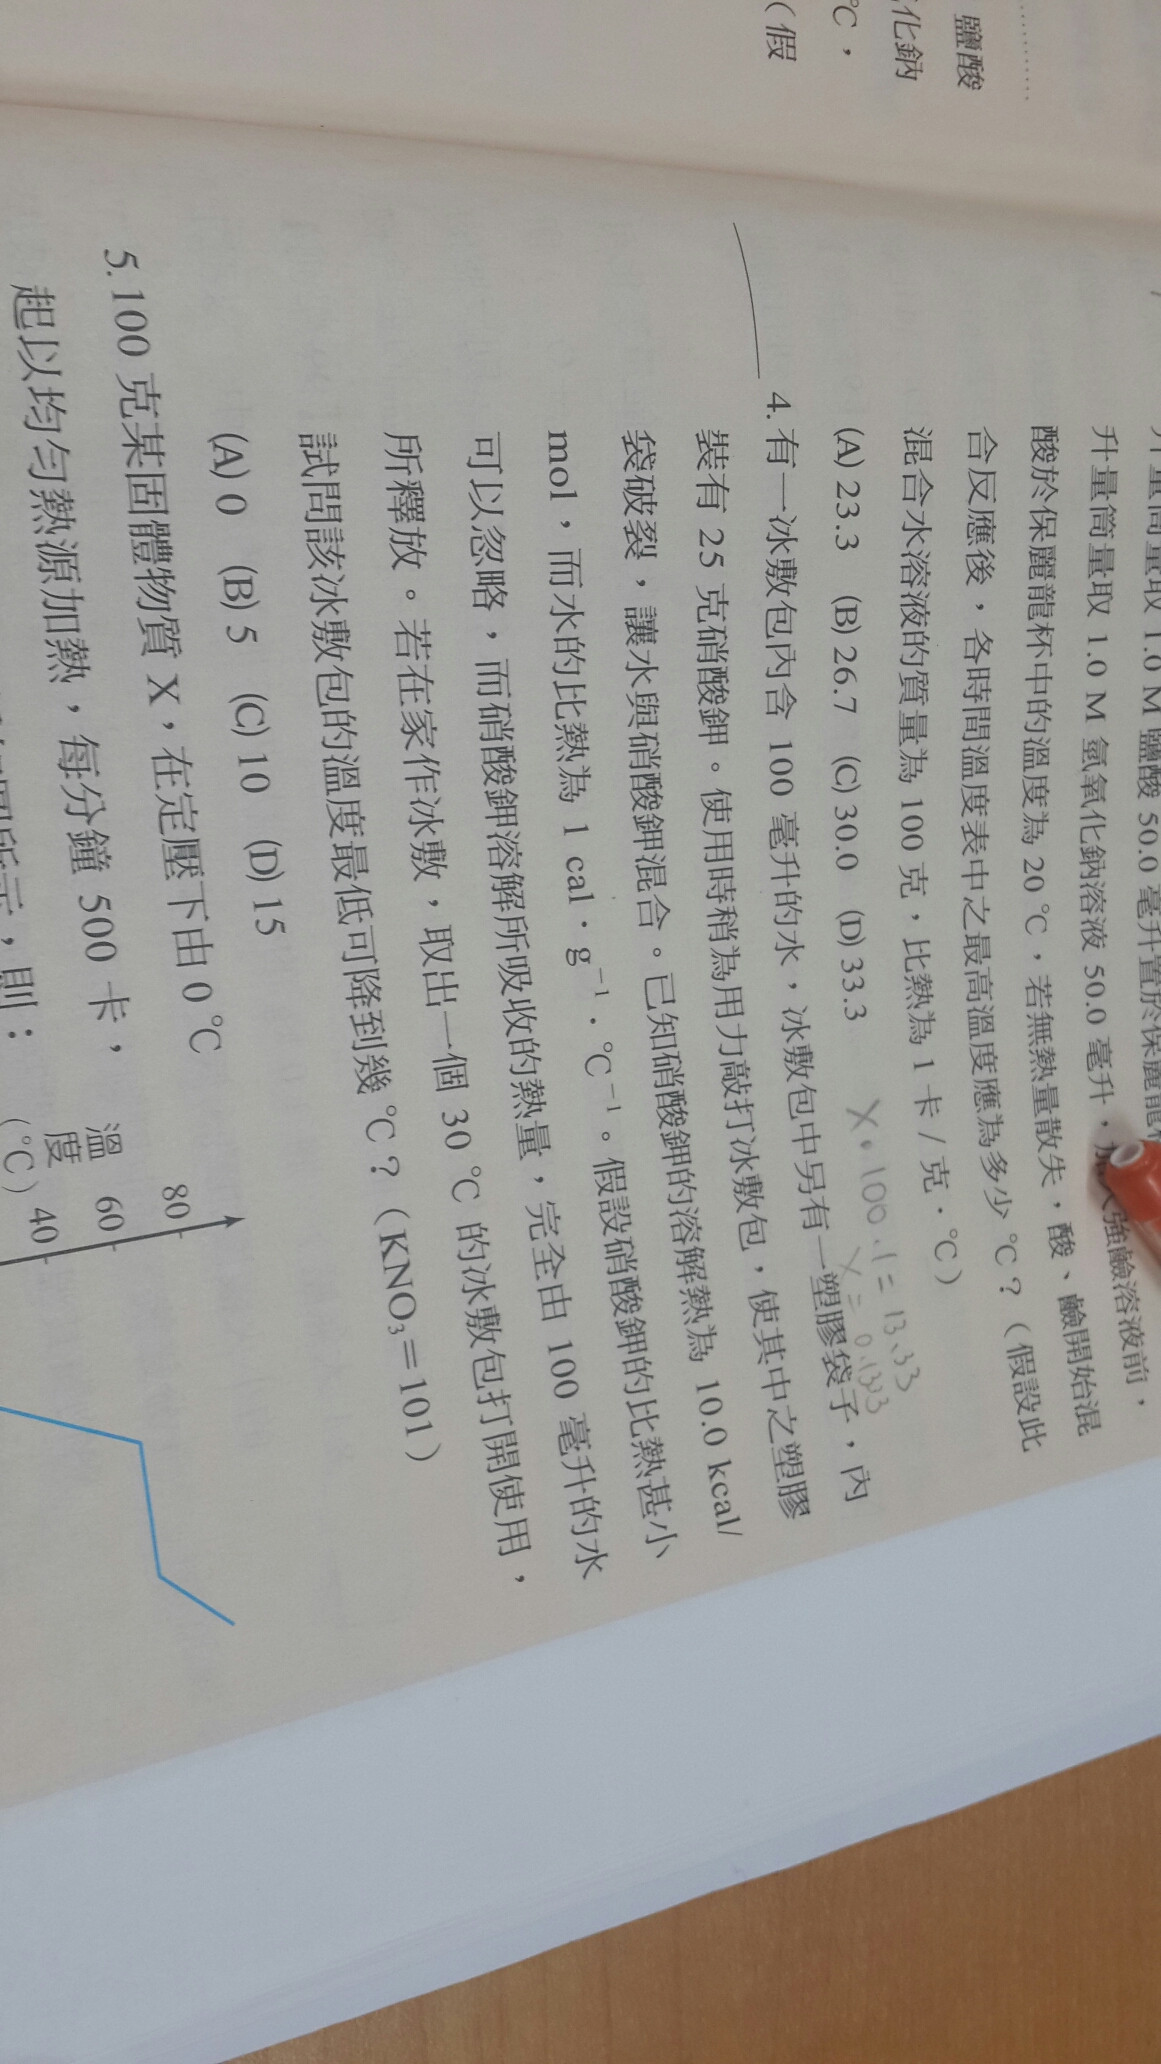 鹽酸
化鈉
℃，
（假
升量筒量取 1.0 M 鹽酸 50.0 毫升置於保麗龍
升量筒量取 1.0 M 氫氧化鈉溶液 50.0 毫升，加入強鹼溶液前，
酸於保麗龍杯中的溫度為 20 ℃，若無熱量散失，酸、鹼開始混
合反應後，各時間溫度表中之最高溫度應為多少 ℃？（假設此
混合水溶液的質量為 100 克，比熱為 1 卡 / 克．℃）
(A) 23.3 (B) 26.7 (C) 30.0 (D) 33.3
X．100．1 = 13.33
X = 0.1333
4. 有一冰敷包內含 100 毫升的水，冰敷包中另有一塑膠袋子，內
裝有 25 克硝酸鉀。使用時稍為用力敲打冰敷包，使其中之塑膠
袋破裂，讓水與硝酸鉀混合。已知硝酸鉀的溶解熱為 10.0 kcal/
mol，而水的比熱為 1 cal．g⁻¹．℃⁻¹。假設硝酸鉀的比熱甚小
可以忽略，而硝酸鉀溶解所吸收的熱量，完全由 100 毫升的水
所釋放。若在家作冰敷，取出一個 30 ℃ 的冰敷包打開使用，
試問該冰敷包的溫度最低可降到幾 ℃？（KNO₃＝101）
(A) 0 (B) 5 (C) 10 (D) 15
5. 100 克某固體物質 X，在定壓下由 0 ℃
起以均勻熱源加熱，每分鐘 500 卡，
所示，則：
溫
度
(℃)
80
60
40